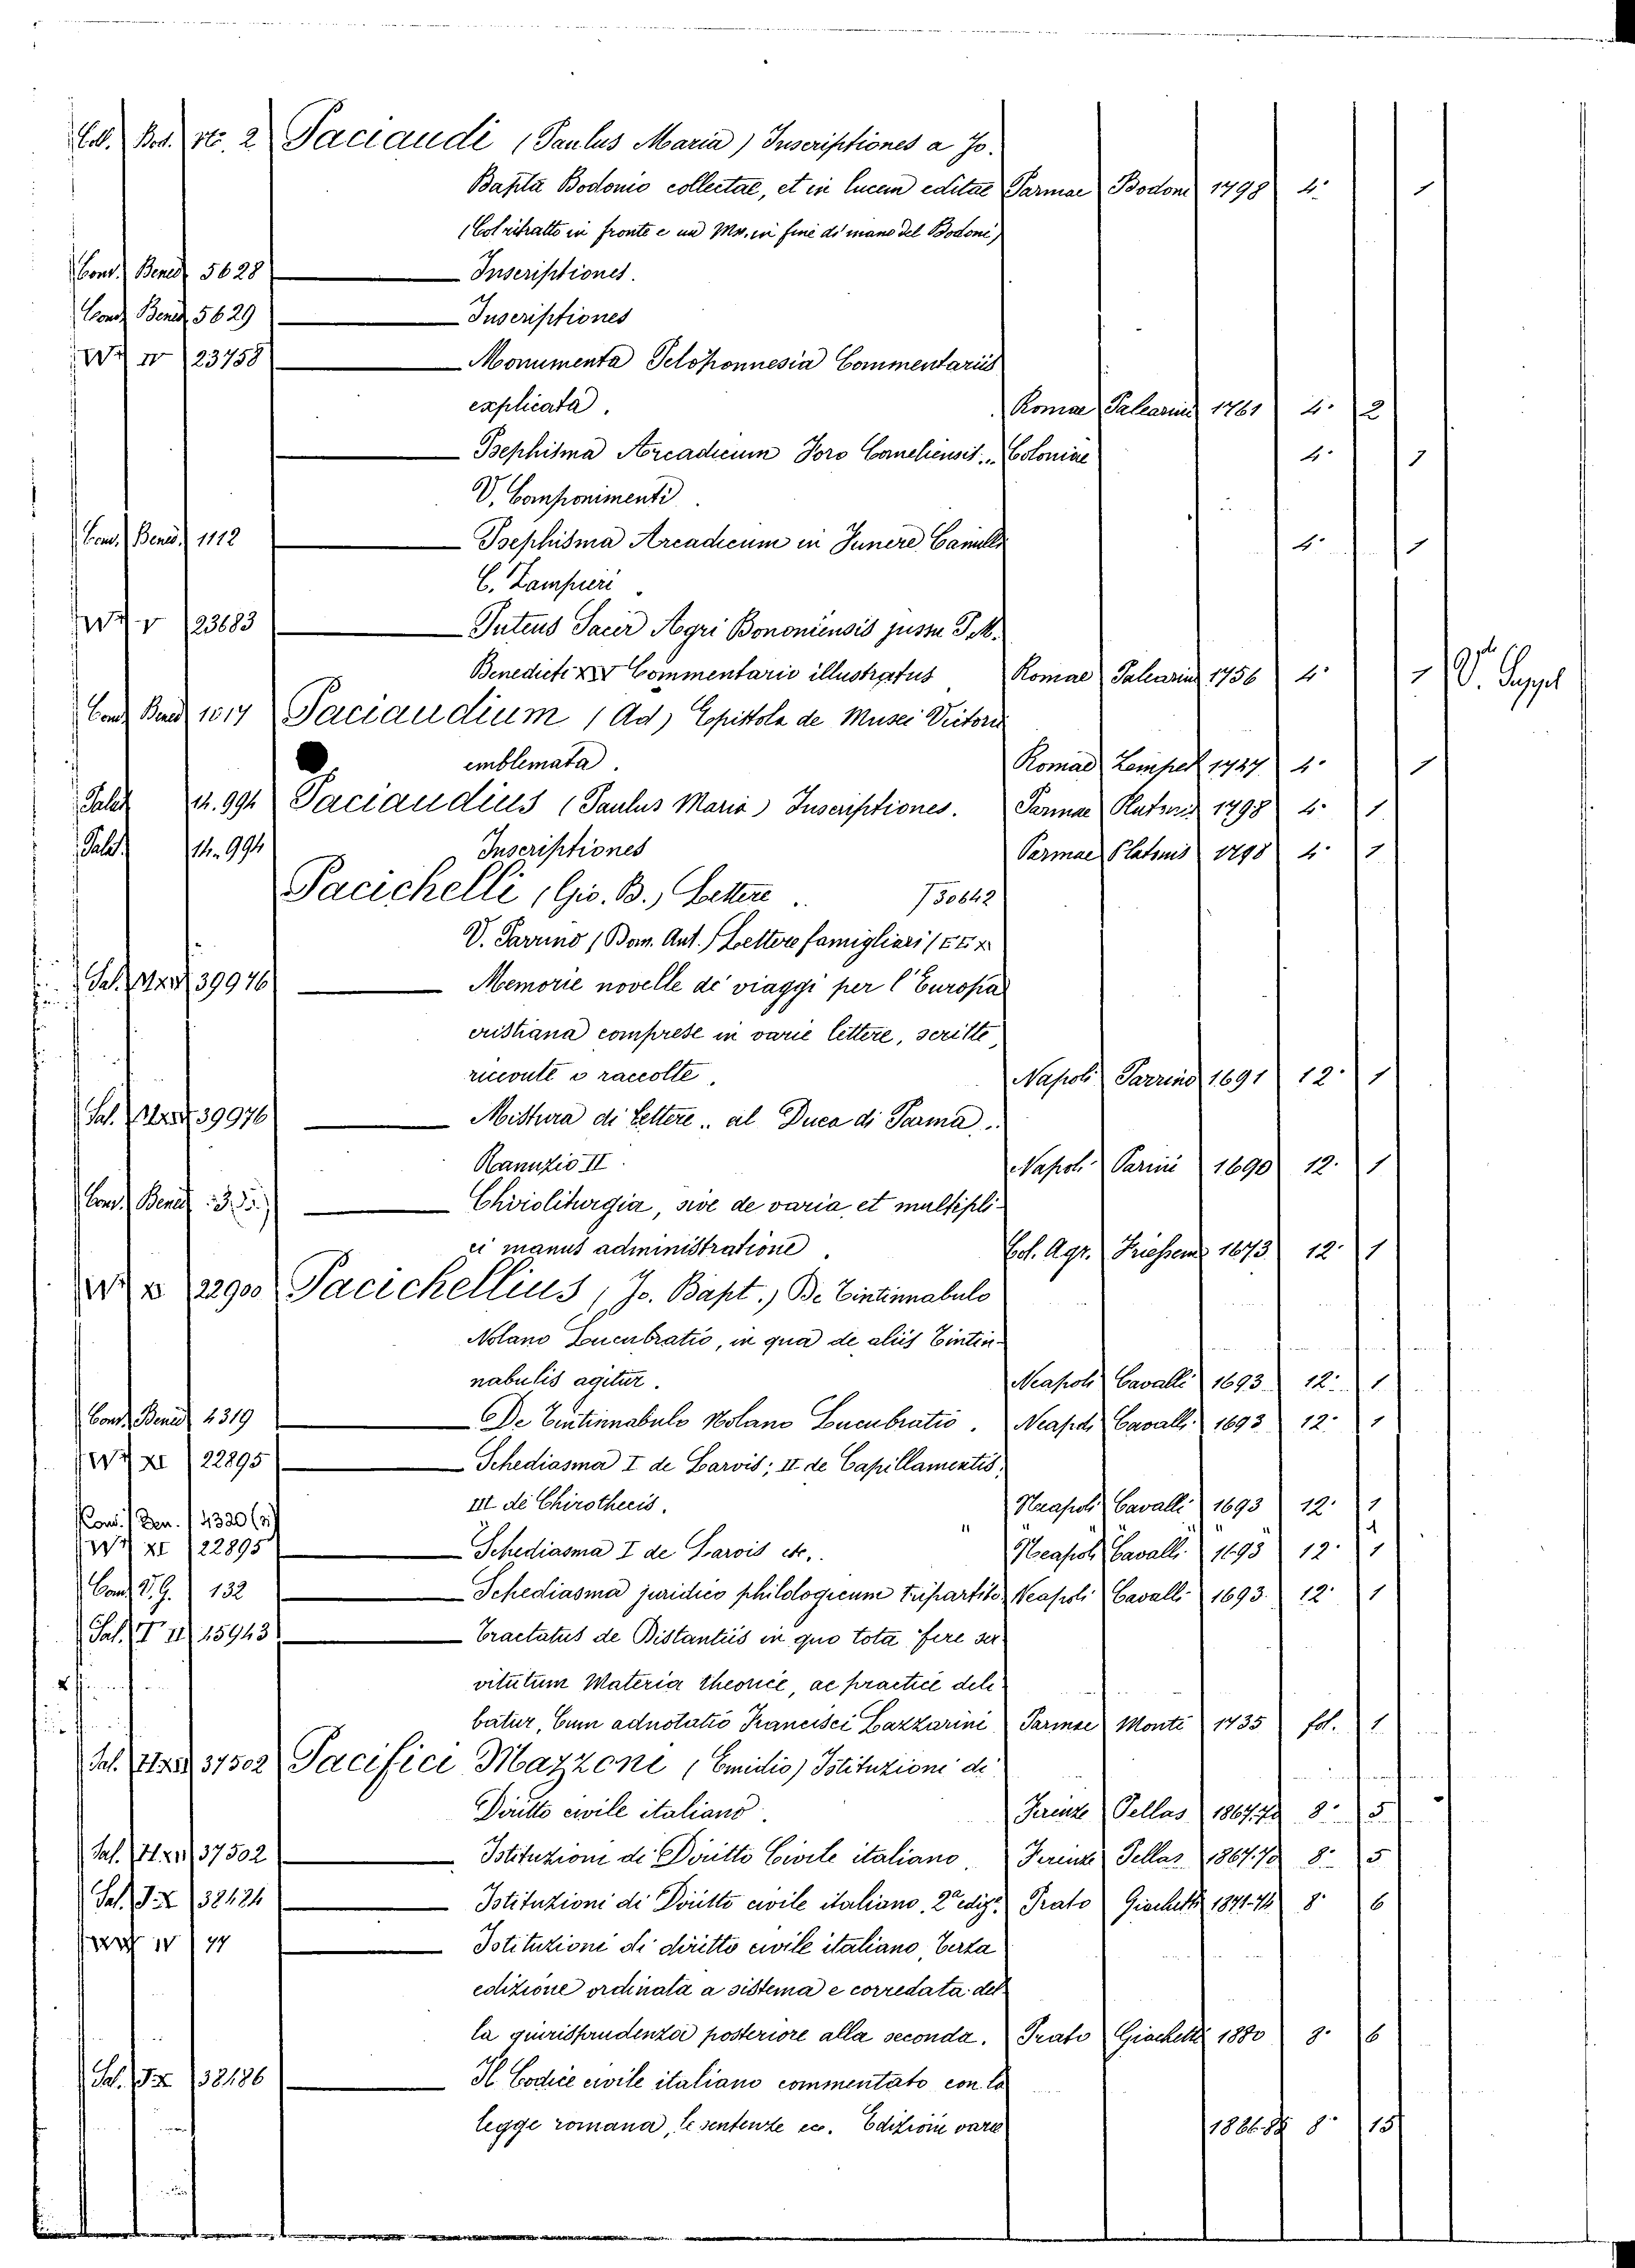 Bod. St. 2 Paciaudi (Paulus Maria) Inscriptiones a Jo.
Bapta Bodonio collectae, et in lucem editae Parmae Bodoni 1798 4.° 1
(Col ritratto in fronte e un Ms. in fine di mano del Bodoni)
Cond. Bened. 5628 Inscriptiones.
Cond. Bened. 5629 Inscriptiones
W IV 23758 Monumenta Peloponnesia Commentariis
explicata. Romae Palearini 1761 4.° 2
Psephisma Arcadicum Foro Corneliensis.. Coloniae 4.° 1
V. Componimenti
Cond. Bened. 1112 Psephisma Arcadicum in Funere Camilli 4.° 1
C. Zampieri
V 23683 Puteus Sacer Agri Bononiensis jussu P.M.
Benedicti XIV Commentario illustratus Romae Palearini 1756 4.° 1 V. Suppl
Cond. Bened. 1017 Paciaudium (Ad) Epistola de Musei Victorii
emblemata. Romae Zempel 1747 4.° 1
Palat. 14.994 Paciaudius (Paulus Maria) Inscriptiones. Parmae Platinis 1798 4.° 1
Palat. 14.994 Inscriptiones Parmae Platinis 1798 4.° 1
Pacichelli (Gio. B.) Lettere.. 730642
V. Parrino (Dom. Ant.) Lettere famigliari
Sal. 39976 Memorie novelle de' viaggi per l'Europa
cristiana comprese in varie lettere, scritte,
ricevute o raccolte. Napoli Parrino 1691 12.° 1
Sal. 39976 Mistura di Lettere.. al Duca di Parma..
Ranuzio II. Napoli Parini 1690 12.° 1
Cond. Bened. Chiroliturgia, sive de varia, et multipli-
ci manus administratione. Col. Agr. Friessem 1673 12.° 1
W 22900 Pacichellius (Jo. Bapt.) De Tintinnabulo
Nolano Lucubratio, in qua de aliis Tintin-
nabulis agitur. Neapoli Cavalli 1693 12.° 1
Cond. Bened. 4319 De Tintinnabulo Nolano Lucubratio. Neapoli Cavalli 1693 12.° 1
W XI 22895 Schediasma I de Larvis; II de Capillamentis,
III de Chirothecis. Neapoli Cavalli 1693 12.° 1
Cond. Ben. 4320 (3) " " " " 1
W XI 22895 Schediasma I de Larvis etc.. Neapoli Cavalli 1693 12.° 1
Cond. V.G. 132 Schediasma juridico philologicum tripartito Neapoli Cavalli 1693 12.° 1
Sal. T II 15943 Tractatus de Distantiis in quo tota fere ser-
vitutum Materia theorice, ac practice deli-
batur, Cum adnotatio Francisci Lazzarini Parmae Monti 1735 fol. 1
Sal. 37502 Pacifici Mazzoni (Emidio) Istituzioni di
Diritto civile italiano. Firenze Pellas 1867.70 8.° 5
Sal. 37502 Istituzioni di Diritto Civile italiano. Firenze Pellas 1867.70 8.° 5
Sal. 38424 Istituzioni di Diritto civile italiano, 2.a ediz. Prato Giachetti 1871-74 8.° 6
IV 77 Istituzioni di diritto civile italiano, Terza
edizione ordinata a sistema e corredata del-
la giurisprudenza posteriore alla seconda. Prato Giachetti 1880 8.° 6
Sal. 38186 Il Codice civile italiano commentato con la
legge romana, le sentenze ec. Edizioni varie 8.° 15